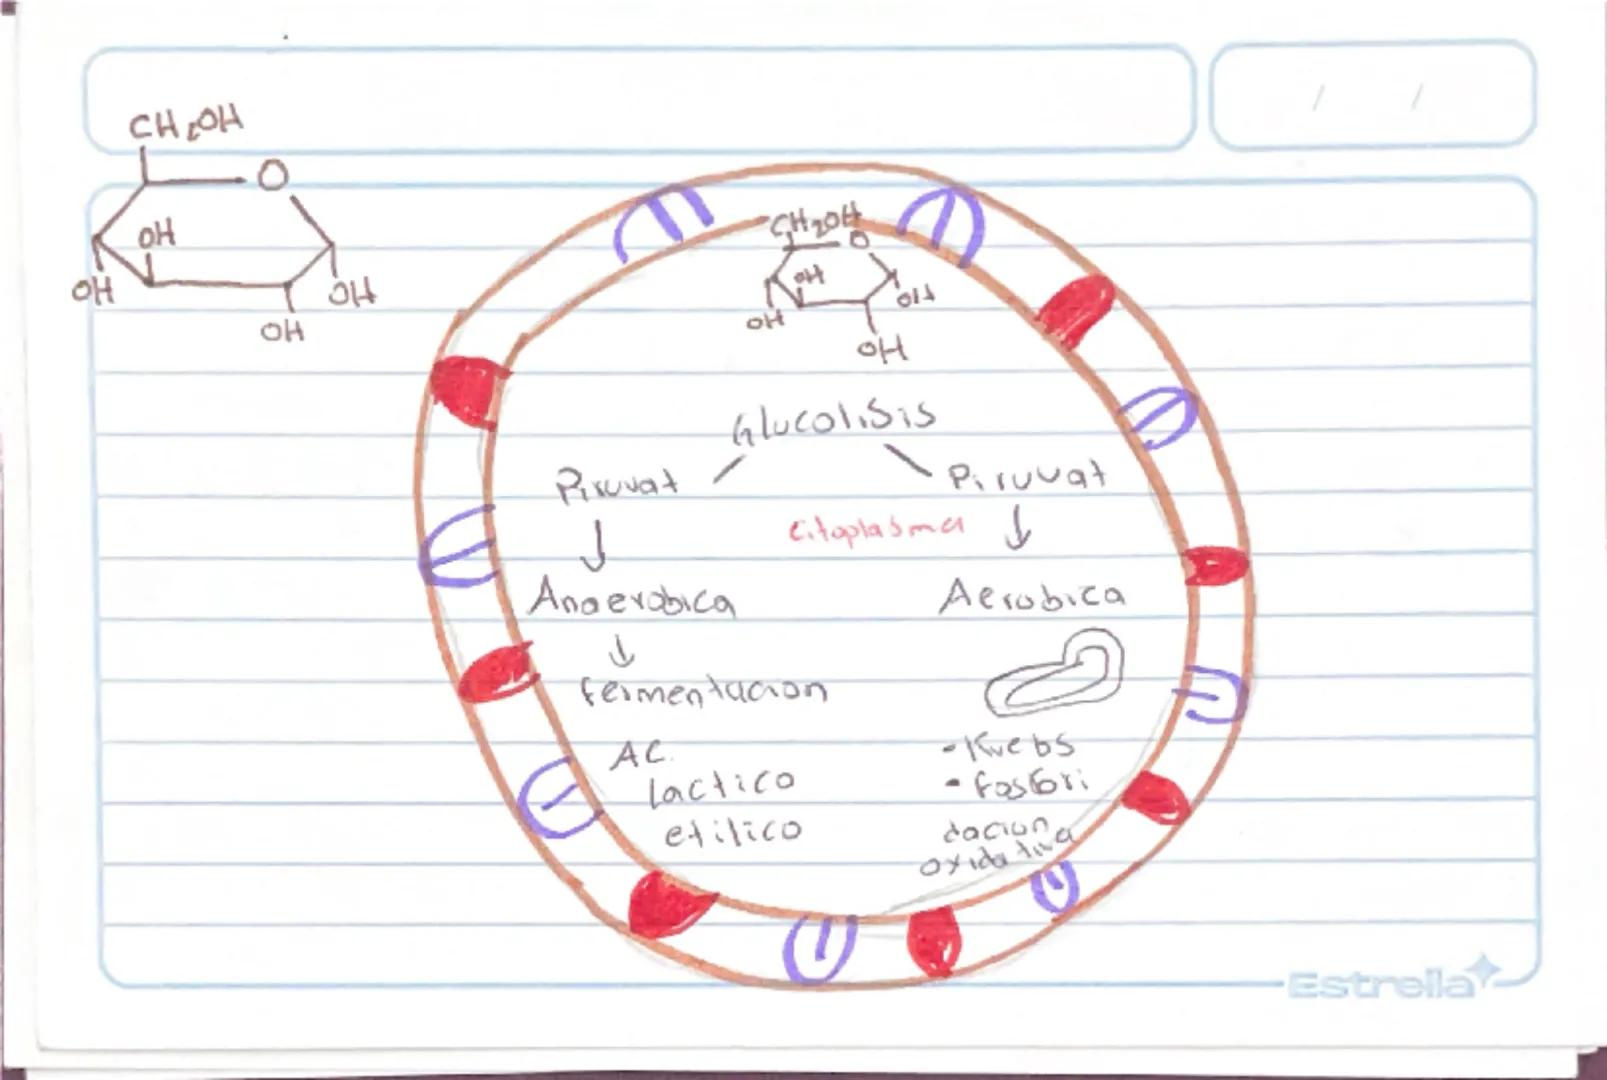 CH2OH
O
OH
OH
OH
OH
CH2OH
O
OH
OH
OH
OH
Glucolisis
Piruvat
Piruvat
Citoplasma
Anaerobica
Aerobica
fermentacion
AC.
lactico
etilico
- Krebs
- fosfori
dacion
oxidativa
Estrella